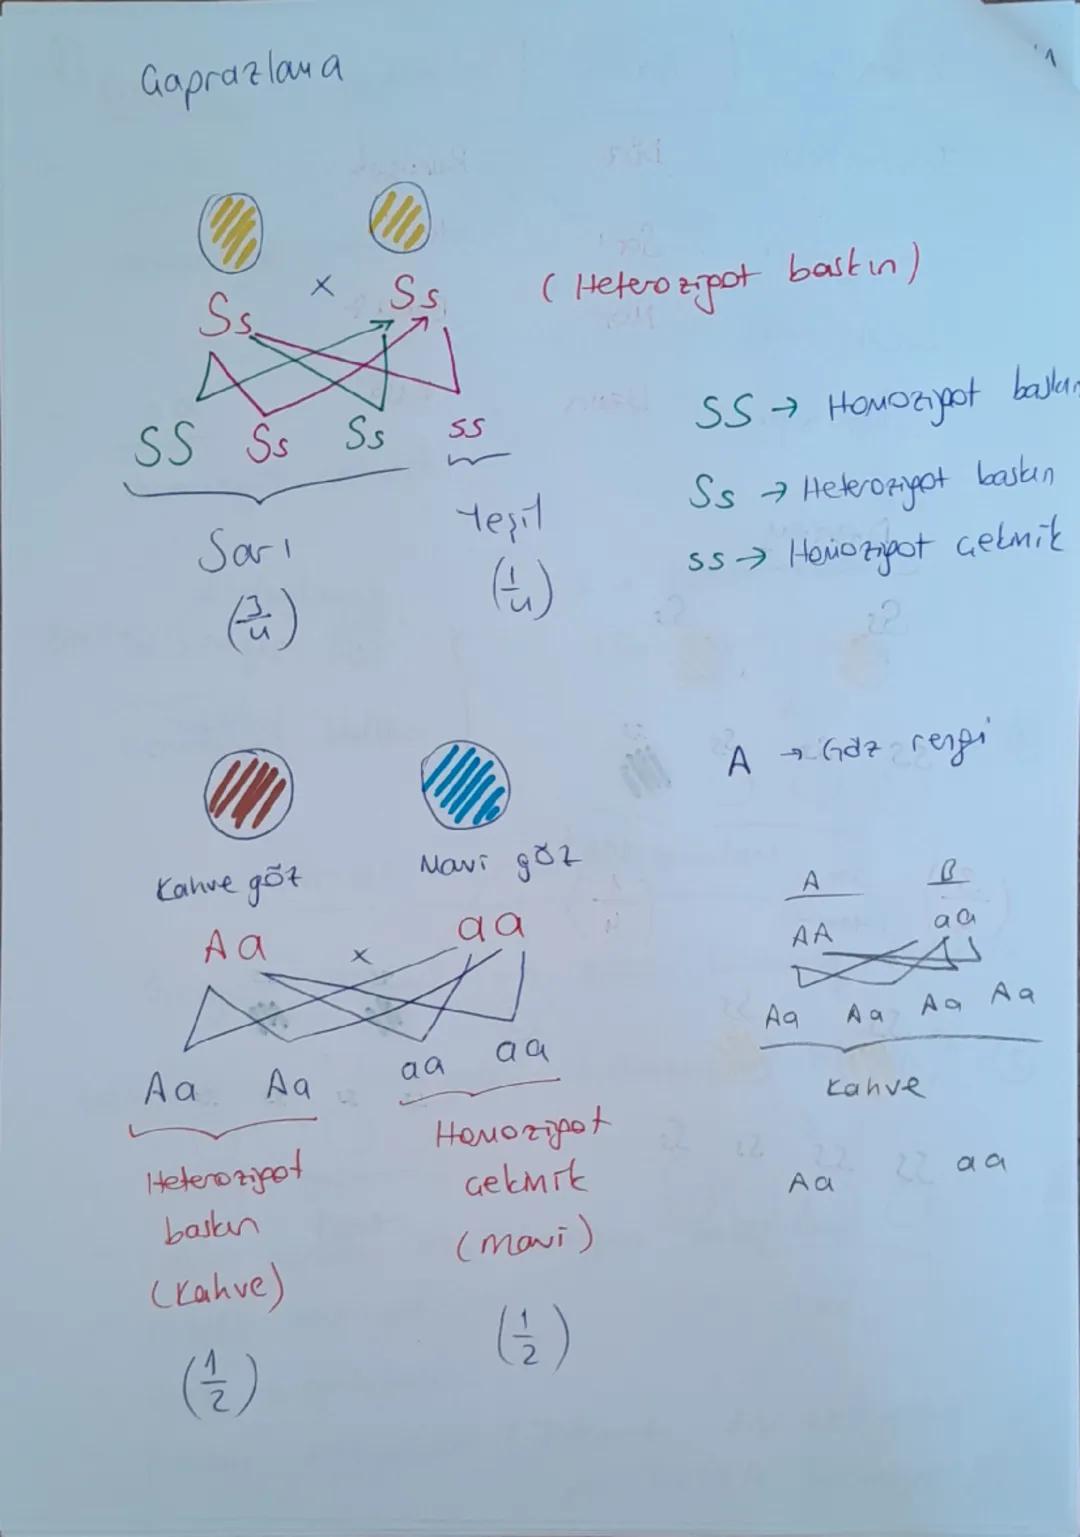 Çaprazlama
1
Ss x Ss (Heterozigot baskın)
SS Ss Ss ss
SS → Homozigot
Ss → Heterozigot baskın
ss → Homozigot çekinik
Sarı Yeşil
(3/4) (1/4)
A → Göz rengi
Kahve göz Mavi göz
Aa x aa
Aa Aa aa aa
Heterozigot
baskın
(Kahve)
(1/2)
Homozigot
çekinik
(mavi)
(1/2)
A B
AA aa
Aa Aa Aa Aa
Kahve
Aa aa